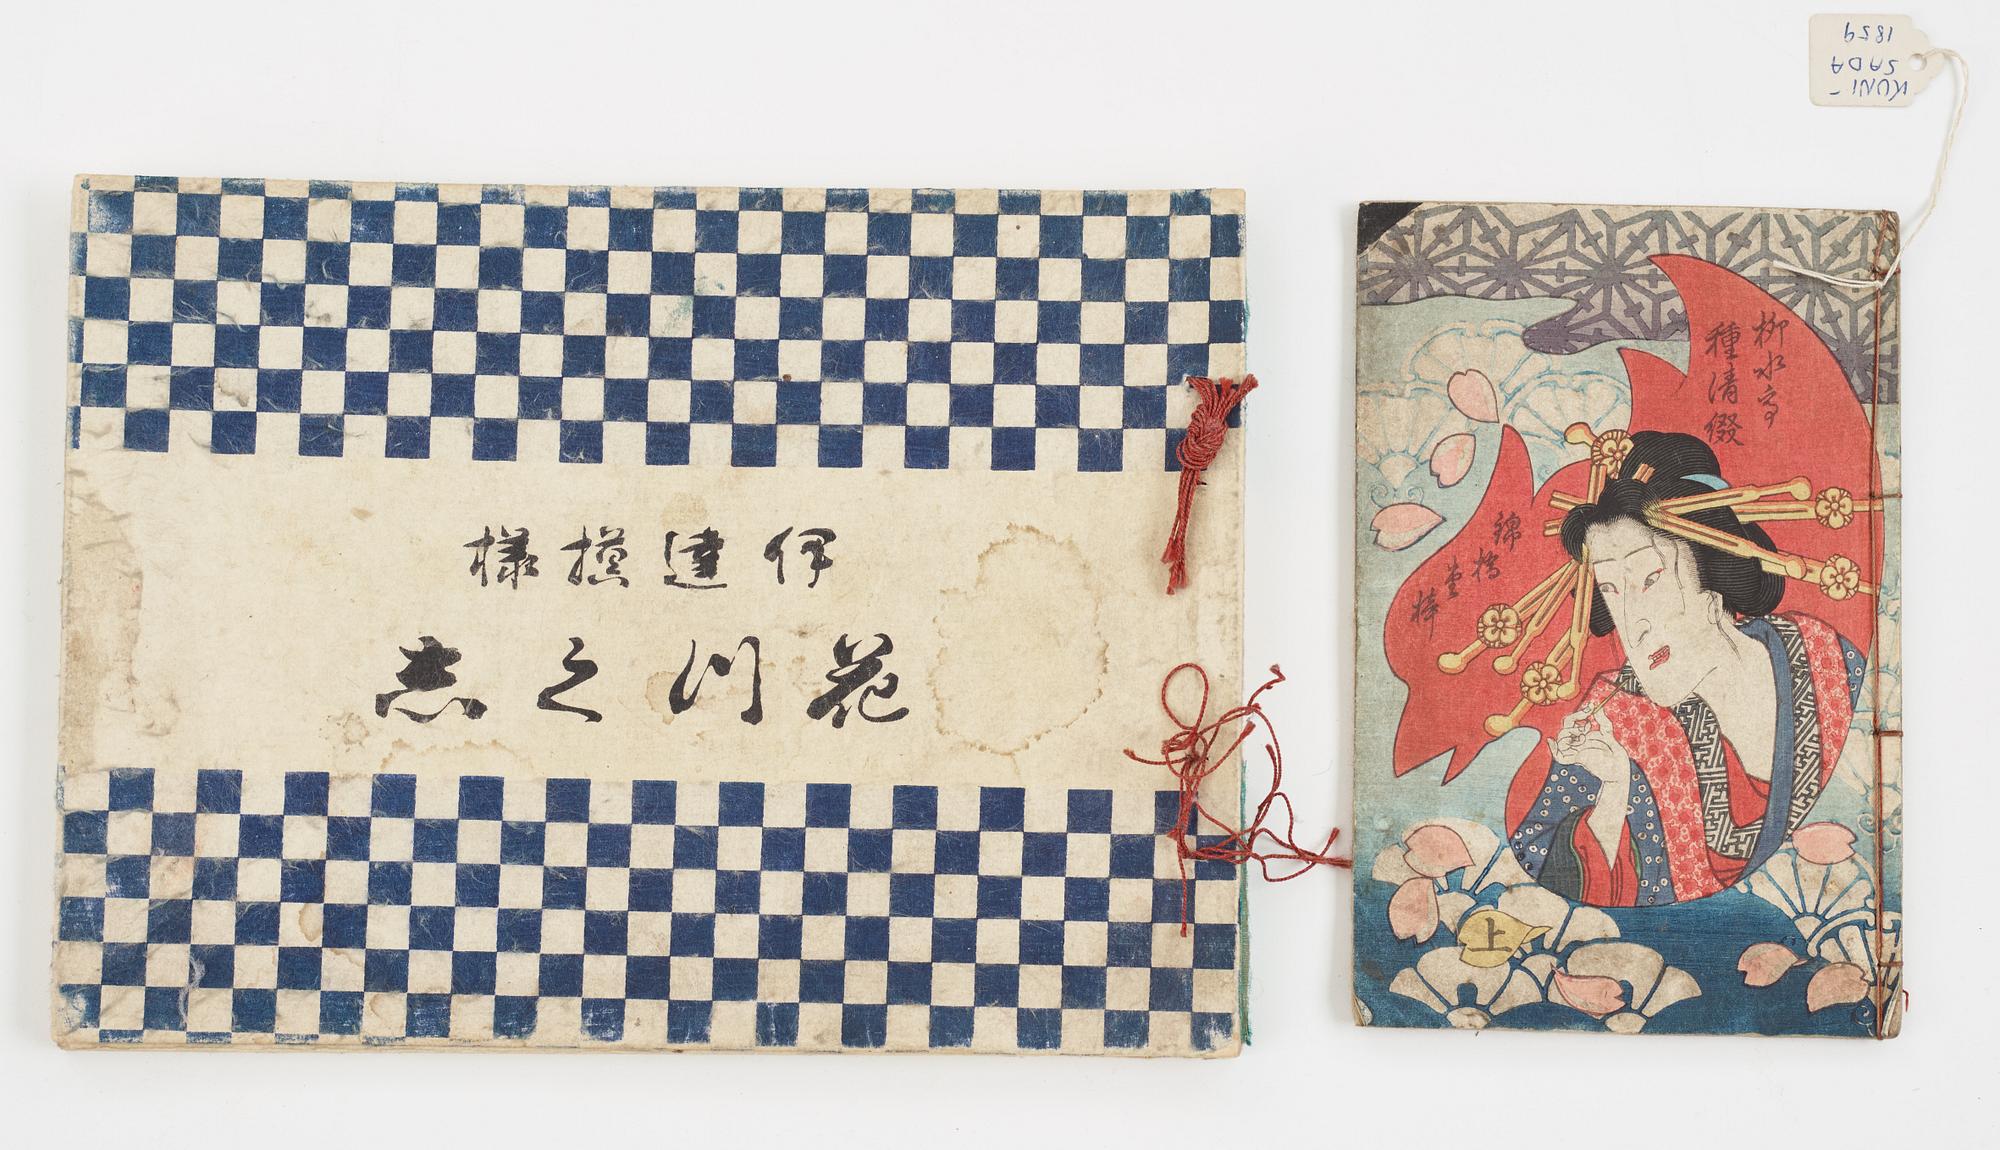 伊達摸様
花川く志
柳水亭
種清綴
錦橋堂梓
上
KUNI-
SADA
1859